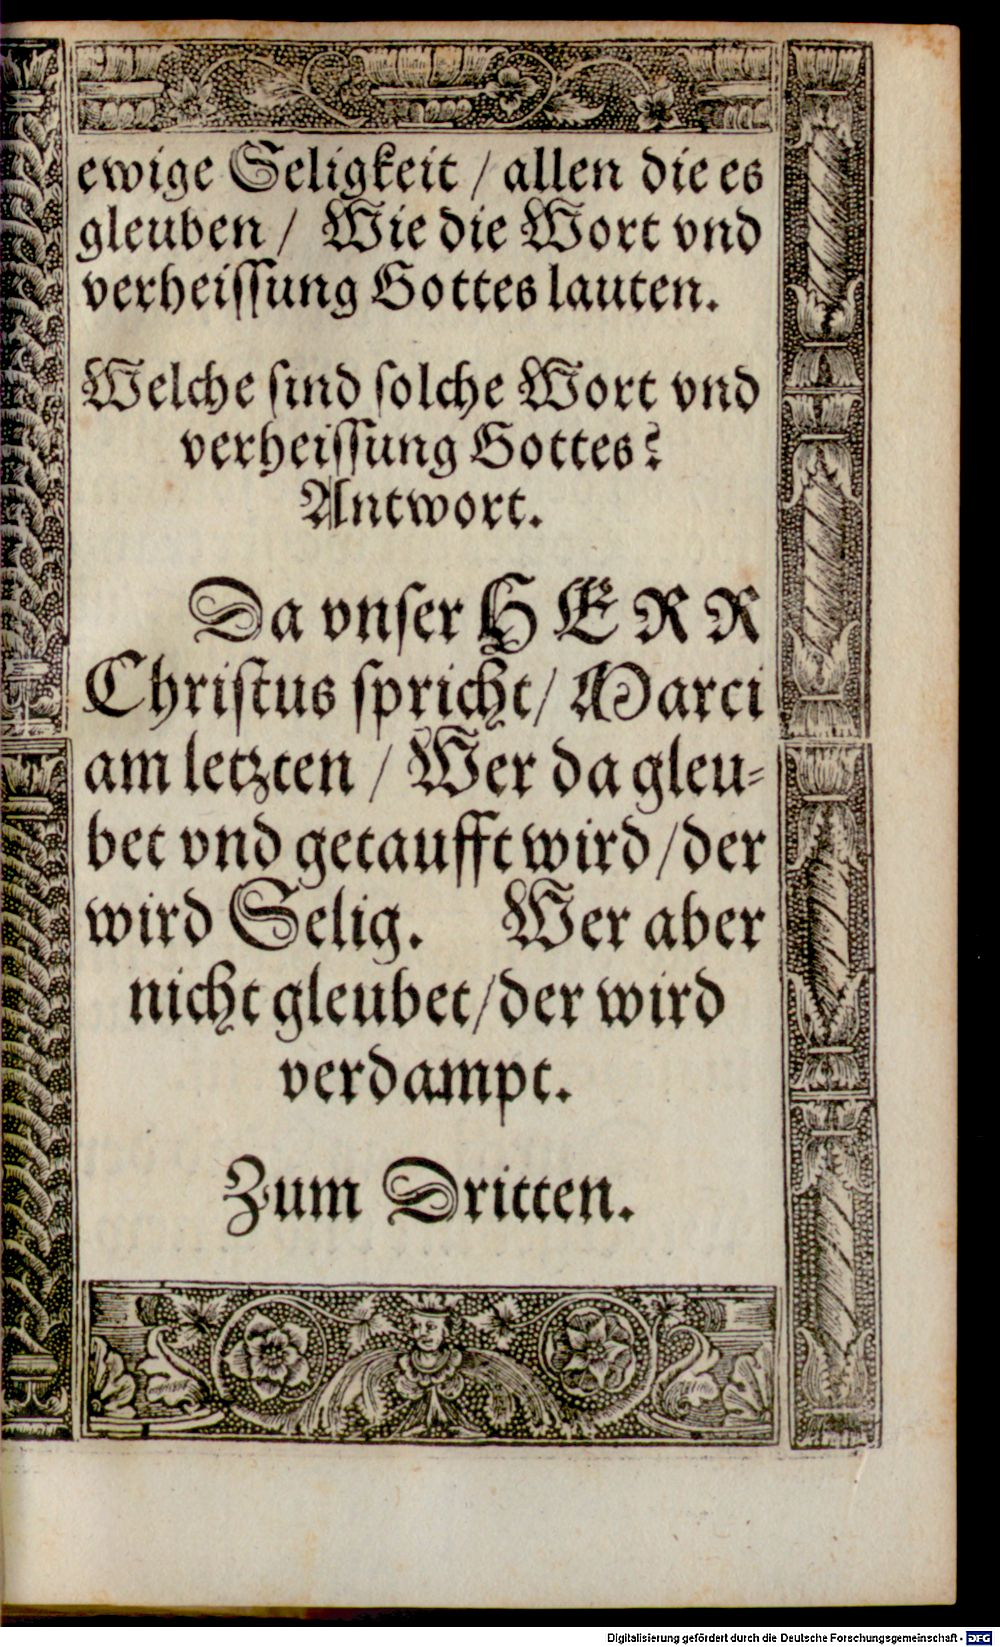 ewige Seligkeit / allen die es
gleuben / Wie die Wort vnd
verheiſſung Gottes lauten.
Welche ſind ſolche Wort vnd
verheiſſung Gottes?
Antwort.
Da vnſer HERR
Chriſtus ſpricht / Marci
am letzten / Wer da gleu⸗
bet vnd getaufft wird / der
wird Selig. Wer aber
nicht gleubet / der wird
verdampt.
Zum Dritten.
Digitalisierung gefördert durch die Deutsche Forschungsgemeinschaft - DFG